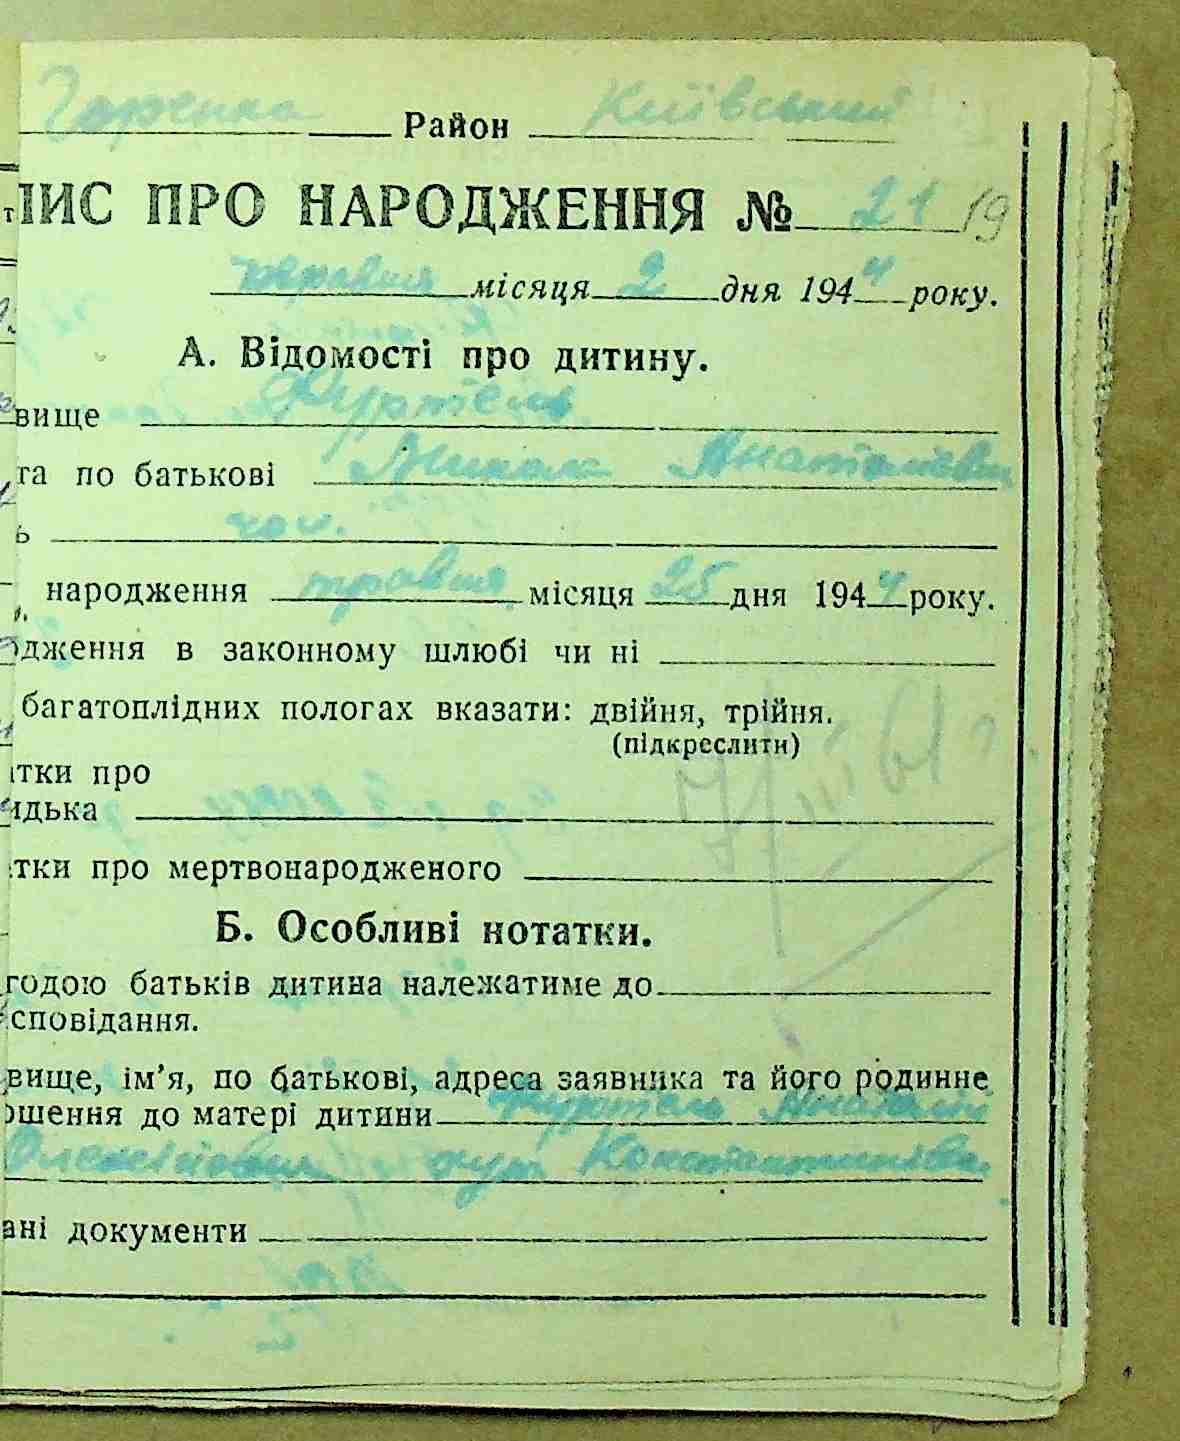 Горенка Район Київський
ПИС ПРО НАРОДЖЕННЯ № 21 19
червня місяця 2 дня 1944 року.
А. Відомості про дитину.
вище Фуртель
та по батькові Анатолієвич
ь чол.
народження травня місяця 25 дня 1944 року.
одження в законному шлюбі чи ні
багатоплідних пологах вказати: двійня, трійня.
(підкреслити)
ітки про
идька
тки про мертвонародженого
Б. Особливі нотатки.
годою батьків дитина належатиме до
сповідання.
вище, ім'я, по батькові, адреса заявника та його родинне
ошення до матері дитини Фуртель Анатолій
Олексійович
ані документи